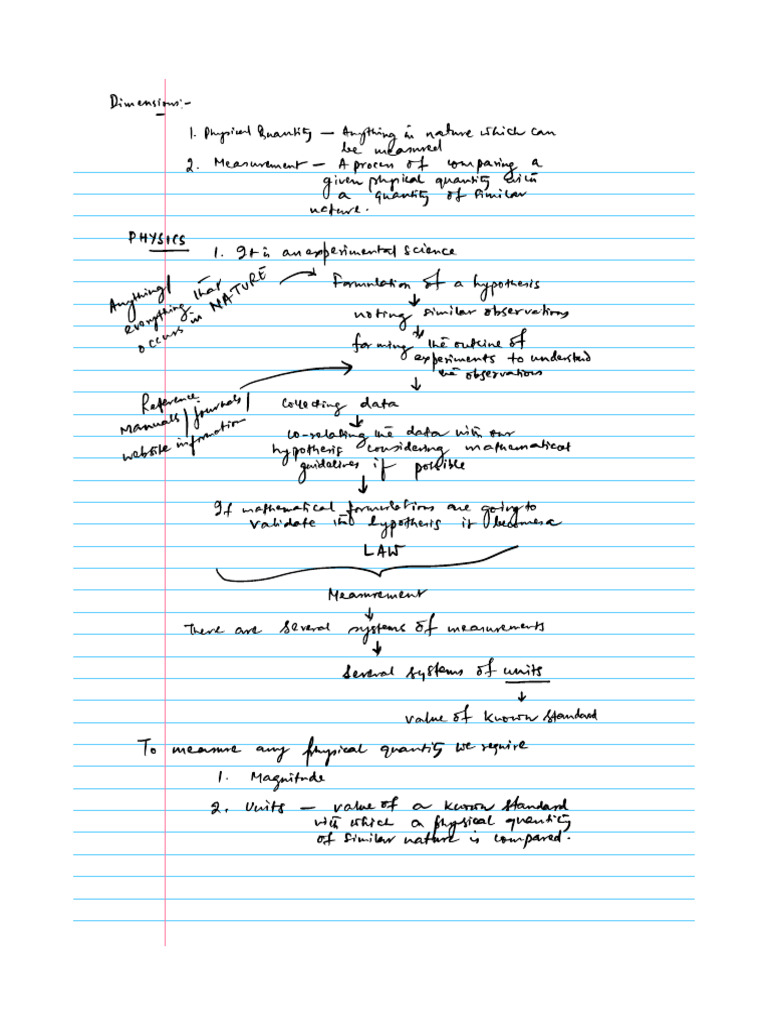 Dimensions:-
1. Physical Quantity — Anything in nature which can
be measured
2. Measurement — A process of comparing a
given physical quantity with
a quantity of similar
nature.
PHYSICS
1. It is an experimental science
Anything/
everything that
occurs in NATURE
Formulation of a hypothesis
noting similar observations
forming the outline of
experiments to understand
the observations
Reference
Manuals/journals/
website information
Collecting data
co-relating the data with our
hypothesis considering mathematical
guidelines if possible
If mathematical formulations are going to
validate the hypothesis it becomes a
LAW
Measurement
There are several systems of measurements
Several systems of units
value of known standard
To measure any physical quantity we require
1. Magnitude
2. Units — value of a known standard
with which a physical quantity
of similar nature is compared.